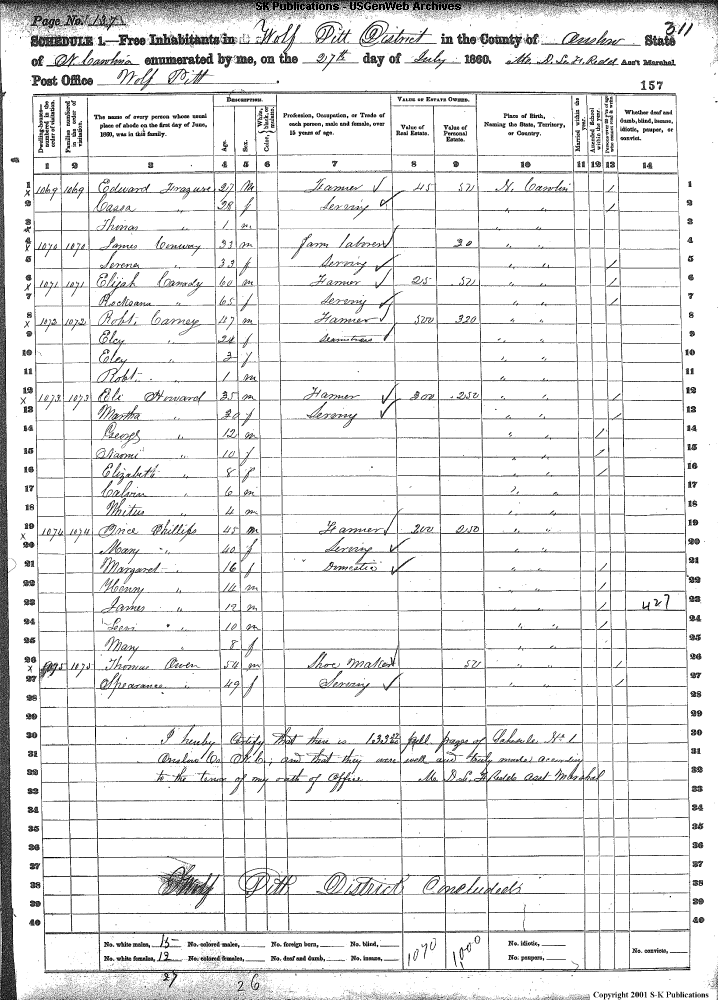 SK Publications - USGenWeb Archives
Page No. 137
311
SCHEDULE 1.—Free Inhabitants in Wolf Pitt District in the County of Onslow State
of N. Carolina enumerated by me, on the 27th day of July 1860. Ass't Marshal
Post Office Wolf Pitt
157
Dwelling-houses—numbered in the order of visitation.
Families numbered in the order of visitation.
The name of every person whose usual place of abode on the first day of June, 1860, was in this family.
DESCRIPTION.
Age.
Sex.
Color, {White, black, or mulatto.
Profession, Occupation, or Trade of each person, male and female, over 15 years of age.
VALUE OF ESTATE OWNED.
Value of Real Estate.
Value of Personal Estate.
Place of Birth, Naming the State, Territory, or Country.
Married within the year.
Attended School within the year.
Persons over 20 y'rs of age who cannot read & write.
Whether deaf and dumb, blind, insane, idiotic, pauper, or convict.
1 2 3 4 5 6 7 8 9 10 11 12 13 14
1 1069 1069 Edward 27 m Farmer 45 N. Carolin / 1
2 Cassa " 28 f Serving " " / 2
3 Thomas " 1 m " " 3
4 1070 1070 James Conway 33 m farm laborer 30 " " 4
5 Serena " 33 f Serving " " / 5
6 1071 1071 Elijah Canady 60 m Farmer 25 " " / 6
7 Rocksana " 65 f Serving " " / 7
8 1072 1072 Robt. Carney 47 m Farmer 500 320 " " 8
9 Elcy " 24 f Seamstress " " 9
10 Elcy " 3 f " " 10
11 Robt. " 1 m " " 11
12 1073 1073 Eli Howard 35 m Farmer 300 250 " " / 12
13 Martha " 30 f Serving " " / 13
14 George " 12 m " " / 14
15 Naomi " 10 f " " / 15
16 Elizabeth " 8 f " " / 16
17 Calvin " 6 m " " 17
18 " 4 m " " 18
19 1074 1074 Brice Phillips 45 m Farmer 200 250 " " 19
20 Mary " 40 f Serving " " 20
21 Margaret " 16 f Domestic " " / 21
22 Henry " 14 m " " / 22
23 James " 12 m " " / 427 23
24 Levi " 10 m " " / 24
25 Mary " 8 f 25
26 1075 1075 Thomas Owen 54 m Shoe Maker " " / 26
27 " 49 f Serving " " / 27
28 28
29 29
30 I hereby Certify that there is full pages of Schedule No 1 30
31 Onslow Co N. C., and that they were well and truly made according 31
32 to the tenor of my oath of Office Asst Marshal 32
33 33
34 34
35 35
36 36
37 37
38 Wolf Pitt District Concluded 38
39 39
40 40
No. white males, 15 No. colored males, No. foreign born, No. blind, 1070 1000 No. idiotic, No. convicts,
No. white females, 12 No. colored females, No. deaf and dumb, No. insane, No. paupers,
27 26
Copyright 2001 S-K Publications